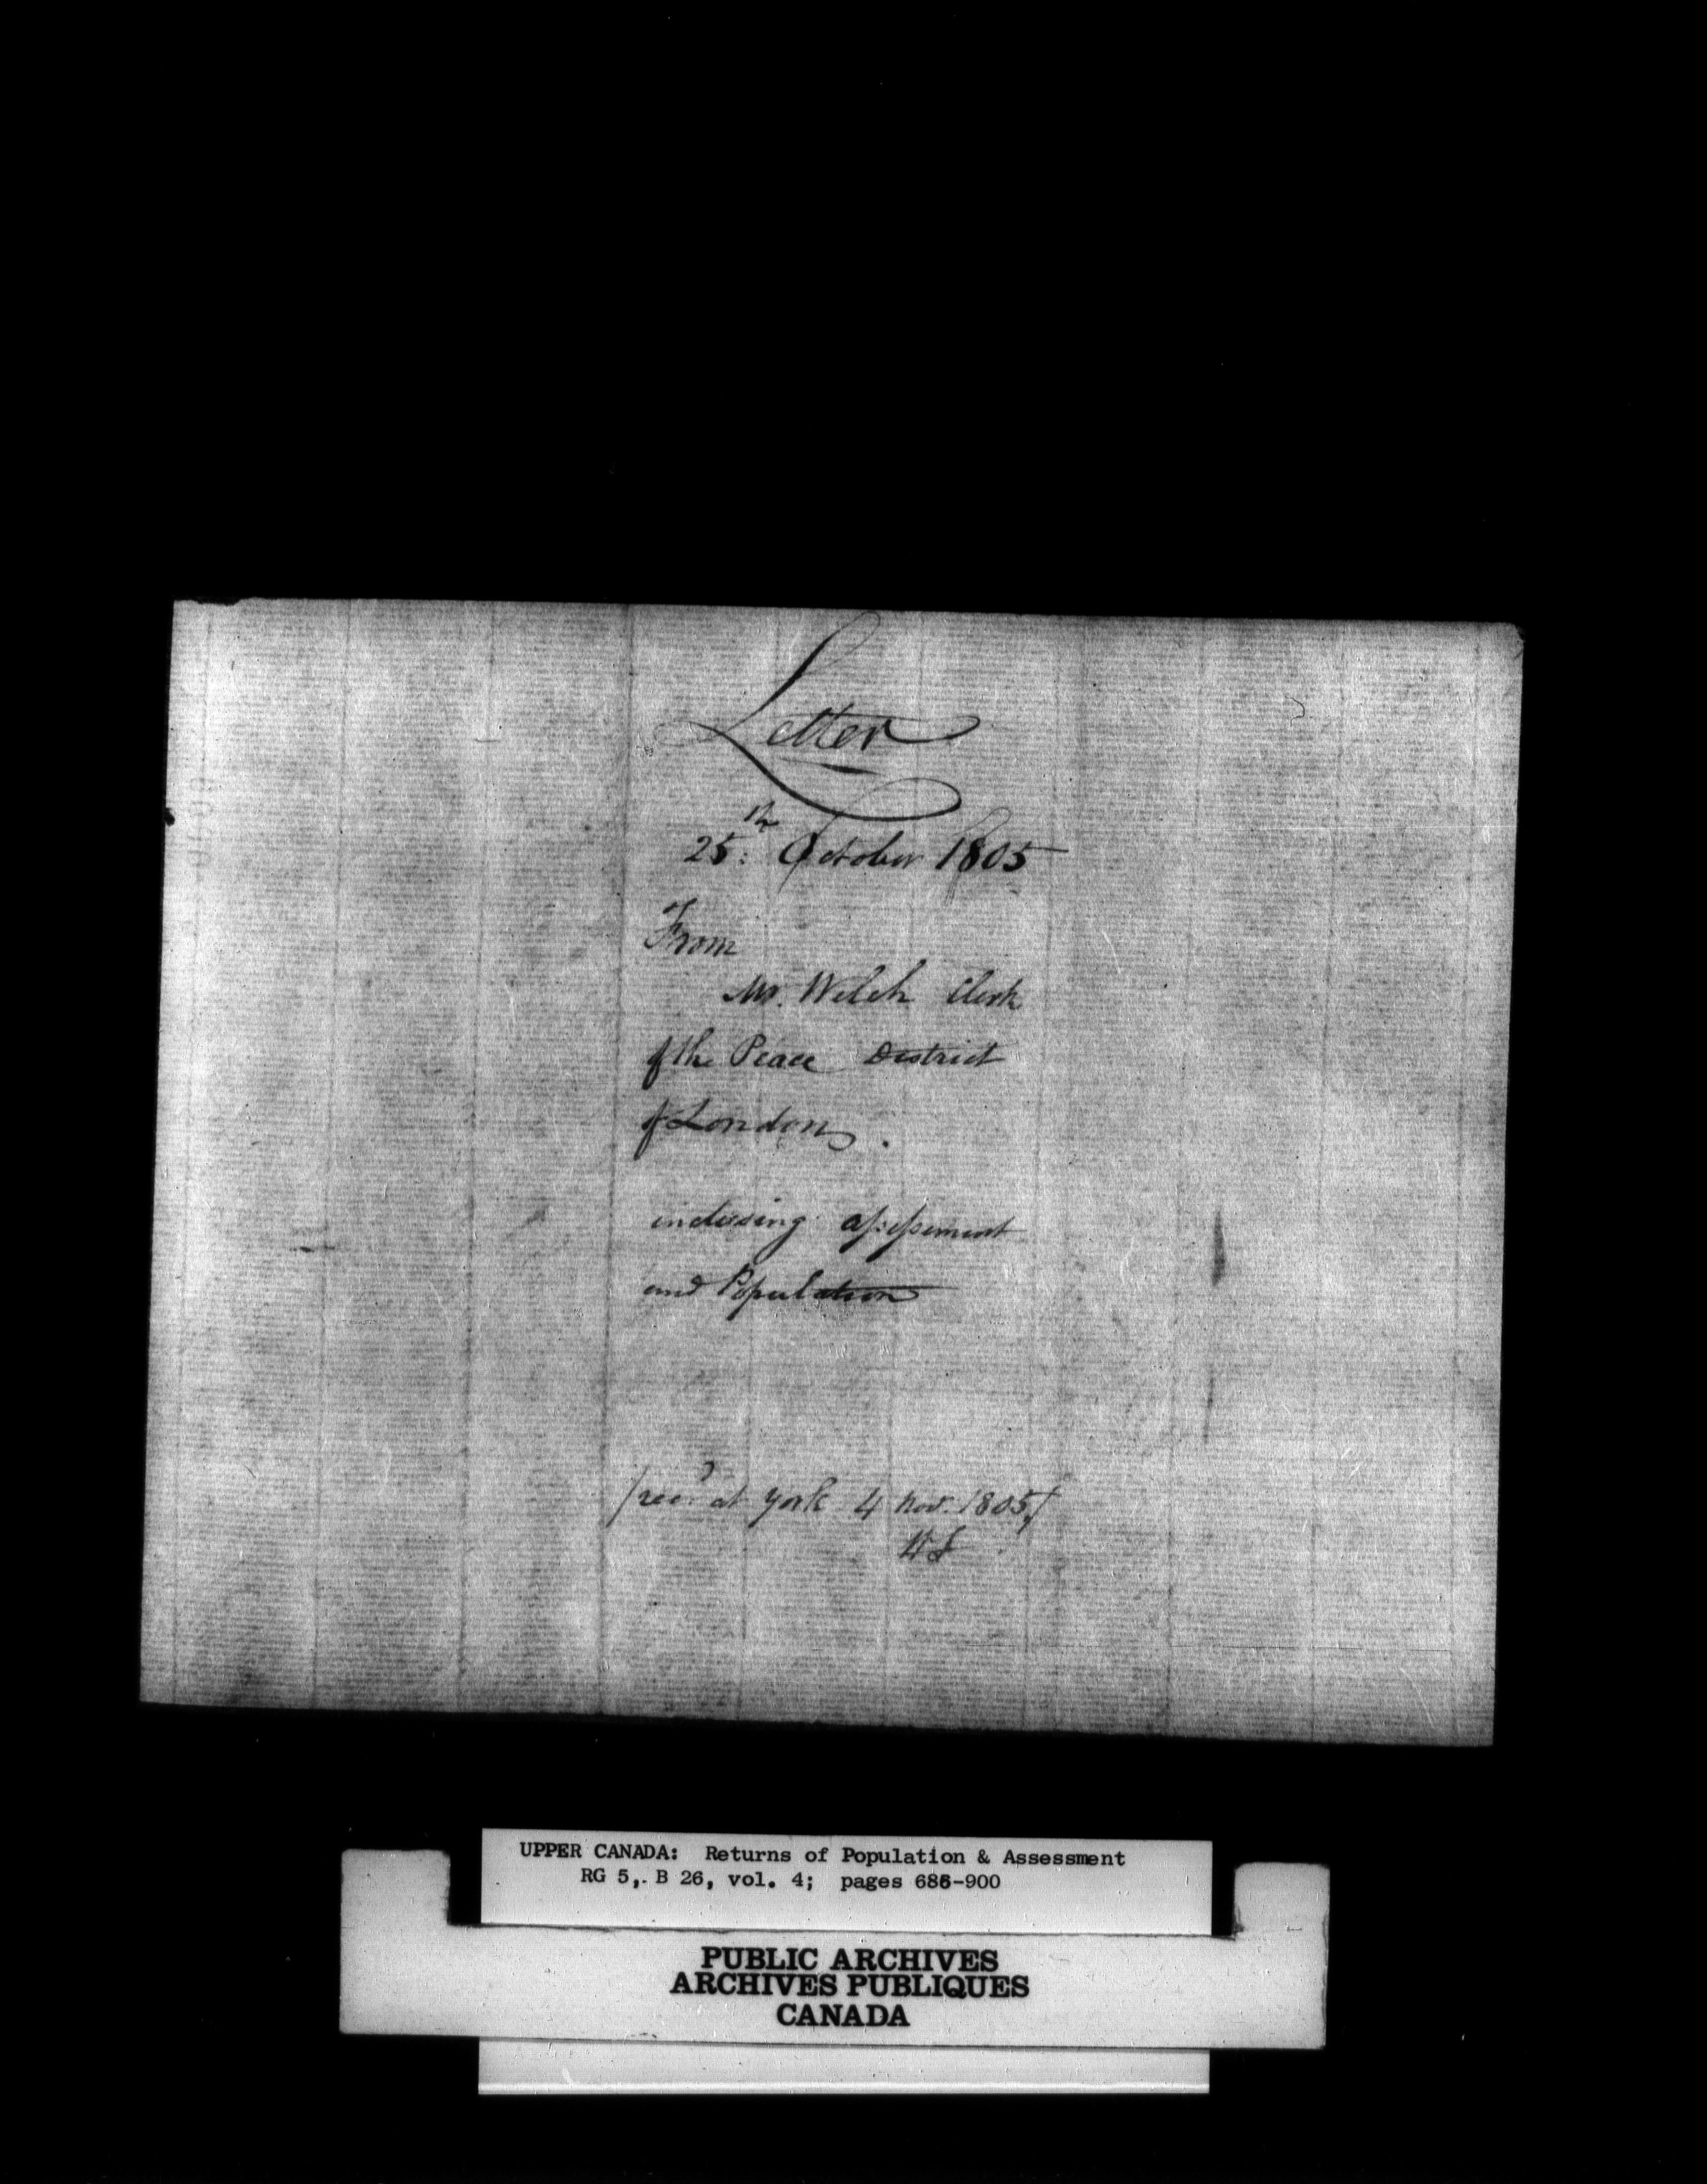 Letter
25th: October 1805
From
Mr. Welch Clerk
of the Peace District
of London.
inclosing assessment
and Population
/recd. at york 4 Nov. 1805/
UPPER CANADA: Returns of Population & Assessment
RG 5, B 26, vol. 4; pages 686-900
PUBLIC ARCHIVES
ARCHIVES PUBLIQUES
CANADA